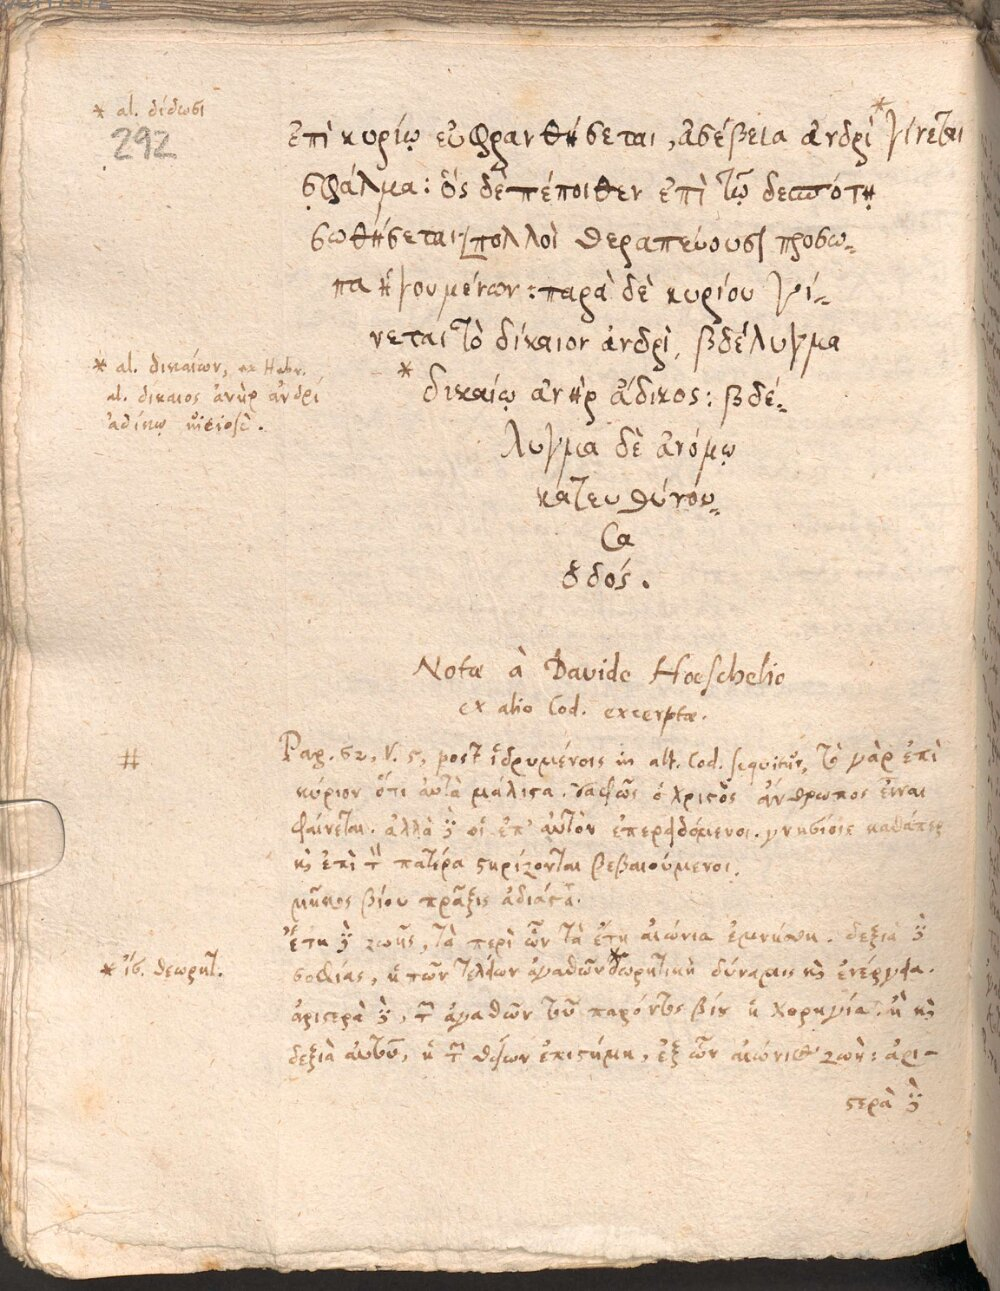 * al. δίδωσι
292
ἐπὶ κυρίῳ εὐφρανθήσεται, ἀσέβεια ἀνδρὶ * γίνεται
σφάλμα: ὃς δὲ πέποιθεν ἐπὶ τῷ δεσπότῃ
σωθήσεται πολλοὶ θεραπεύουσι πρόσω-
πα ἡγουμένων: παρὰ δὲ κυρίου γί-
νεται τὸ δίκαιον ἀνδρὶ, βδέλυγμα
* al. δικαίων, ex Hebr.
al. δίκαιος ἀνὴρ ἀνδρὶ
ἀδίκῳ
* δικαίῳ ἀνὴρ ἄδικος: βδέ-
λυγμα δὲ ἀνόμῳ
κατευθύνου-
σα
ὁδός.
Notæ à Davide Hoeschelio
ex alio Cod. excerptæ.
# Pag. 62, V. 5, post ἱδρυμένοις in alt. Cod. sequitur, τὸ γὰρ ἐπὶ
κύριον ὅτι αὐτὰ μάλιστα. σαφῶς ὁ χριστὸς ἄνθρωπος εἶναι
φαίνεται. ἀλλὰ καὶ οἱ ἐπ' αὐτὸν ἐπερειδόμενοι. γνησίως καθάπερ
καὶ ἐπὶ τὸν πατέρα στηρίζονται βεβαιούμενοι.
μῆκος βίου πρᾶξις
ἔτη δὲ ζωῆς, τὰ περὶ ὧν τὰ ἔτη αἰώνια ἐμνήσθη. δεξιὰ δὲ
* ἴσ. θεωρητ.
σοφίας, ἡ τῶν τελείων ἀγαθῶν * δωρητικὴ δύναμις καὶ ἐνέργεια.
ἀριστερὰ δὲ, τῶν ἀγαθῶν τοῦ παρόντος βίου ἡ χορηγία. ἢ καὶ
δεξιὰ αὐτοῦ, ἡ τῶν θείων ἐπιστήμη, ἐξ ὧν αἰώνιος ζωή: ἀρι-
στερὰ δὲ